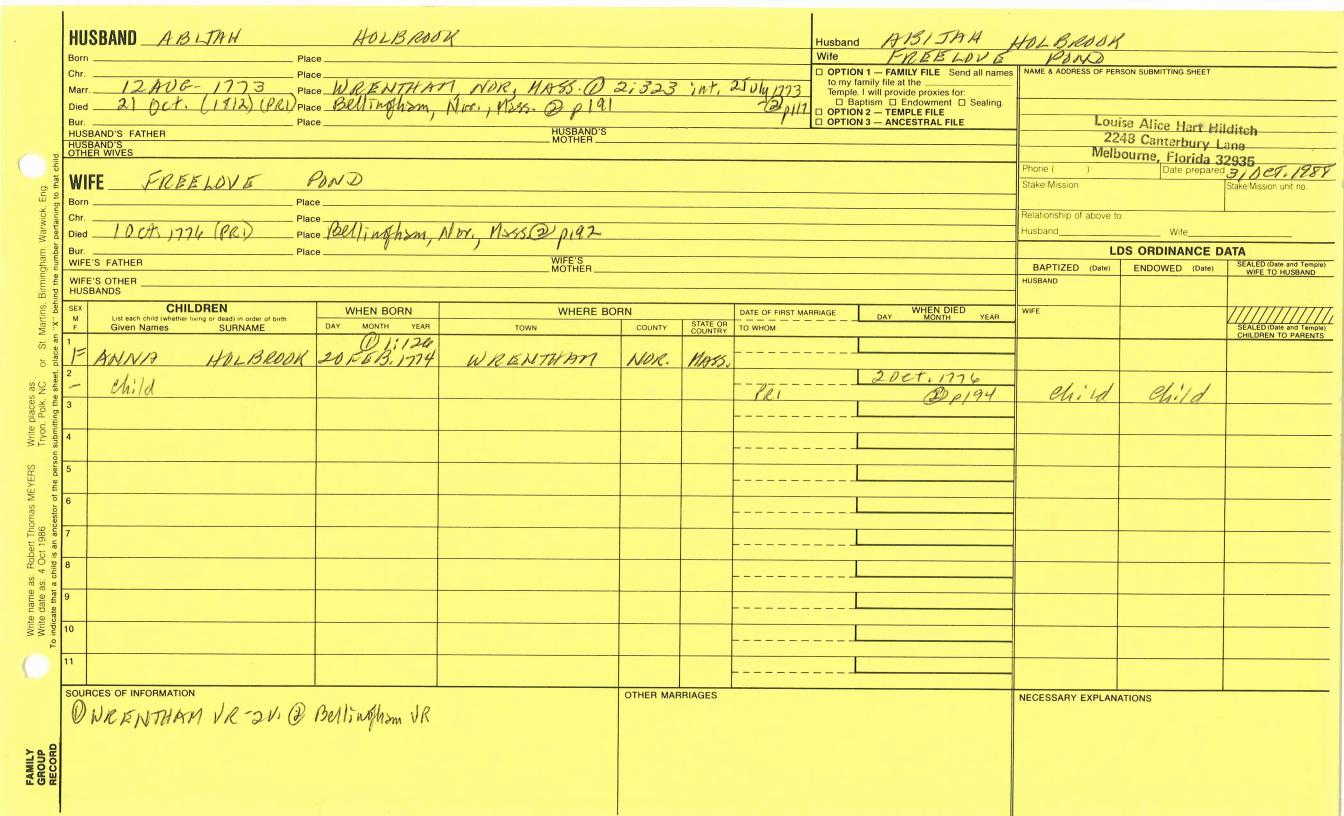 HUSBAND ABIJAH HOLBROOK
Born Place
Chr. Place
Marr. 12 AUG- 1773 Place WRENTHAM, NOR, MASS. ① 2:323 int. 25 July 1773
Died 21 Oct. (1812) (PR1) Place Bellingham, Nor., Mass. ② p191 ② p117
Bur. Place
HUSBAND'S FATHER HUSBAND'S MOTHER
HUSBAND'S OTHER WIVES
WIFE FREELOVE POND
Born Place
Chr. Place
Died 1 Oct. 1776 (PR1) Place Bellingham, Nor., Mass ② p192
Bur. Place
WIFE'S FATHER WIFE'S MOTHER
WIFE'S OTHER HUSBANDS
Husband ABIJAH HOLBROOK
Wife FREELOVE POND
☐ OPTION 1 — FAMILY FILE Send all names
to my family file at the
Temple. I will provide proxies for:
☐ Baptism ☐ Endowment ☐ Sealing.
☐ OPTION 2 — TEMPLE FILE
☐ OPTION 3 — ANCESTRAL FILE
NAME & ADDRESS OF PERSON SUBMITTING SHEET
Louise Alice Hart Hilditch
2248 Canterbury Lane
Melbourne, Florida 32935
Phone ( ) Date prepared 31 OCT. 1988
Stake Mission Stake Mission unit no.
Relationship of above to:
Husband Wife
LDS ORDINANCE DATA
BAPTIZED (Date) ENDOWED (Date) SEALED (Date and Temple) WIFE TO HUSBAND
HUSBAND
WIFE
SEALED (Date and Temple) CHILDREN TO PARENTS
SEX M F
CHILDREN
List each child (whether living or dead) in order of birth
Given Names SURNAME
WHEN BORN
DAY MONTH YEAR
WHERE BORN
TOWN COUNTY STATE OR COUNTRY
DATE OF FIRST MARRIAGE
TO WHOM
WHEN DIED
DAY MONTH YEAR
1 ① 1:126
F ANNA HOLBROOK 20 FEB. 1774 WRENTHAM NOR. MASS.
2 2 Oct. 1776
- child PR1 ② p194 child child
3
4
5
6
7
8
9
10
11
SOURCES OF INFORMATION
① WRENTHAM VR-2V. ② Bellingham VR
OTHER MARRIAGES
NECESSARY EXPLANATIONS
Write name as: Robert Thomas MEYERS Write places as: Tryon, Polk, NC or St. Martins, Birmingham, Warwick, Eng.
Write date as: 4 Oct 1986
To indicate that a child is an ancestor of the person submitting the sheet, place an "X" behind the number pertaining to that child
FAMILY
GROUP
RECORD